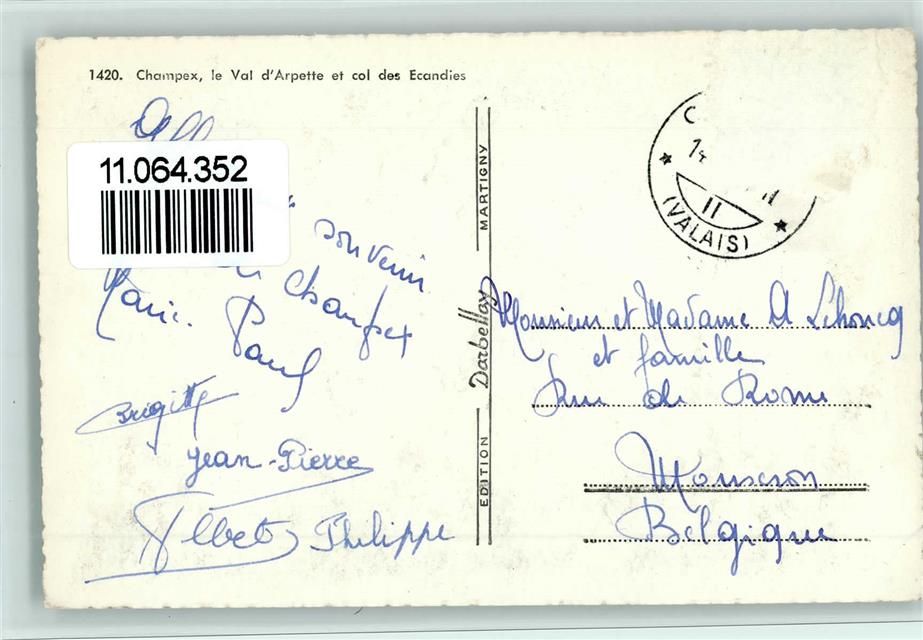 1420. Champex, le Val d'Arpette et col des Ecandies
11.064.352
souvenir
de Champex
Marie. Paul
Brigitte
Jean-Pierre
Albert Philippe
EDITION Darbellay MARTIGNY
II
(VALAIS)
Monsieur et Madame A Lehoucq
et famille
Rue de Rome
Mouscron
Belgique